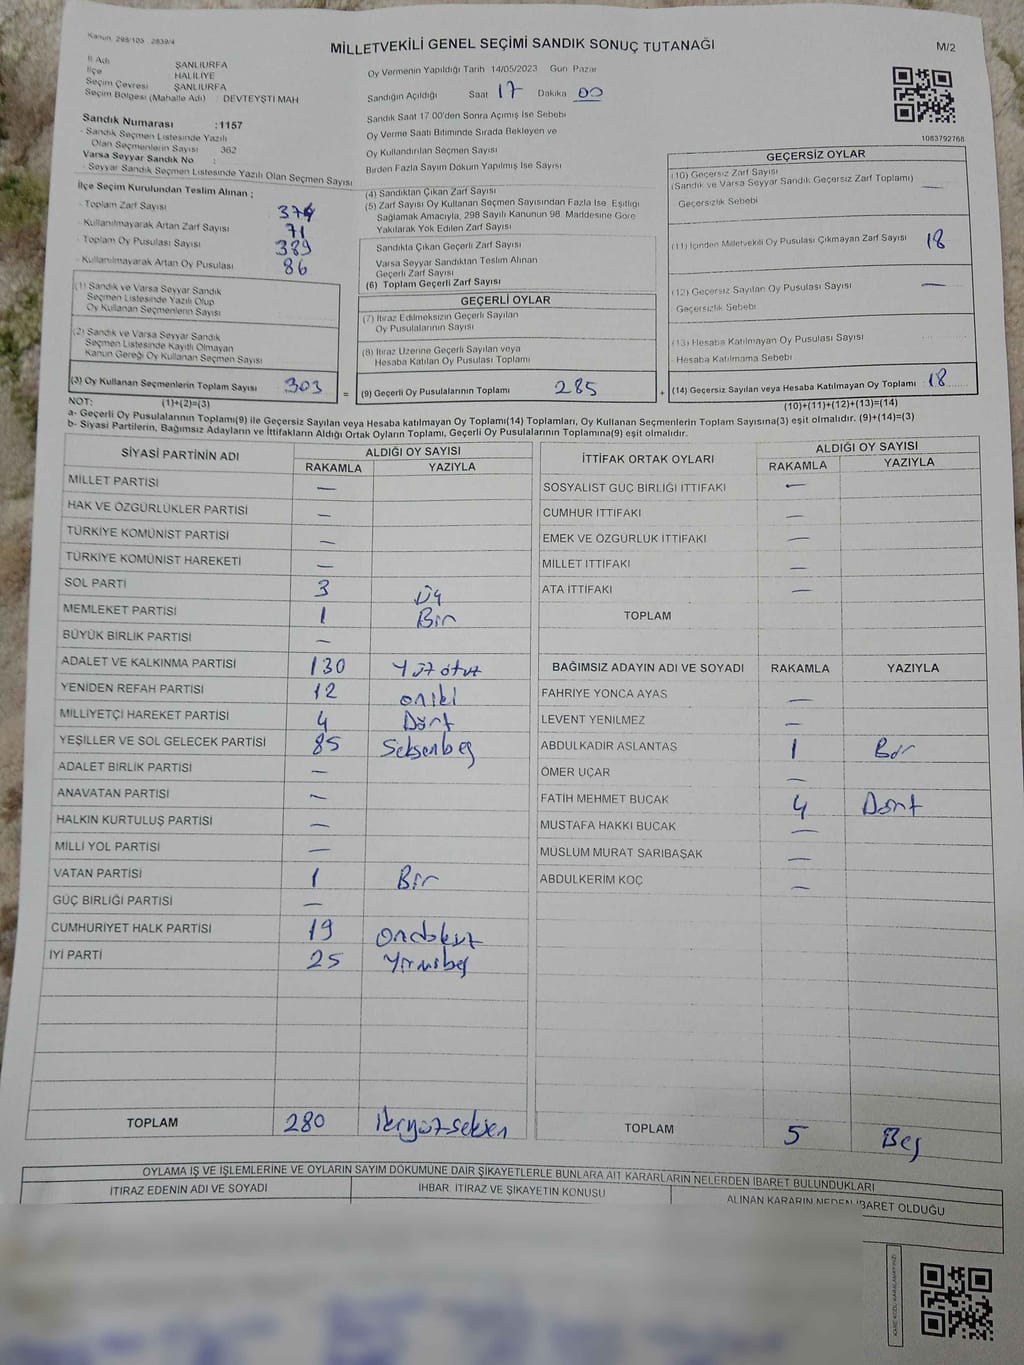 Kanun, 298/103 2839/4
MİLLETVEKİLİ GENEL SEÇİMİ SANDIK SONUÇ TUTANAĞI
M/2
İl Adı ŞANLIURFA
İlçe HALİLİYE
Seçim Çevresi ŞANLIURFA
Seçim Bölgesi (Mahalle Adı) : DEVTEYŞTİ MAH
Sandık Numarası :1157
- Sandık Seçmen Listesinde Yazılı
Olan Seçmenlerin Sayısı 362
Varsa Seyyar Sandık No :
- Seyyar Sandık Seçmen Listesinde Yazılı Olan Seçmen Sayısı
Oy Vermenin Yapıldığı Tarih 14/05/2023 Gün Pazar
Sandığın Açıldığı Saat 17 Dakika 00
Sandık Saat 17 00'den Sonra Açımış İse Sebebi
Oy Verme Saati Bitiminde Sırada Bekleyen ve
Oy Kullandırılan Seçmen Sayısı
Birden Fazla Sayım Döküm Yapılmış İse Sayısı
1083792768
İlçe Seçim Kurulundan Teslim Alınan ;
- Toplam Zarf Sayısı 374
- Kullanılmayarak Artan Zarf Sayısı 71
- Toplam Oy Pusulası Sayısı 389
- Kullanılmayarak Artan Oy Pusulası 86
(1) Sandık ve Varsa Seyyar Sandık
Seçmen Listesinde Yazılı Olup
Oy Kullanan Seçmenlerin Sayısı
(2) Sandık ve Varsa Seyyar Sandık
Seçmen Listesinde Kayıtlı Olmayan
Kanun Gereği Oy Kullanan Seçmen Sayısı
(3) Oy Kullanan Seçmenlerin Toplam Sayısı 303 =
(4) Sandıktan Çıkan Zarf Sayısı
(5) Zarf Sayısı Oy Kullanan Seçmen Sayısından Fazla İse, Eşitliği
Sağlamak Amacıyla, 298 Sayılı Kanunun 98. Maddesine Göre
Yakılarak Yok Edilen Zarf Sayısı
Sandıkta Çıkan Geçerli Zarf Sayısı
Varsa Seyyar Sandıktan Teslim Alınan
Geçerli Zarf Sayısı
(6) Toplam Geçerli Zarf Sayısı
GEÇERLİ OYLAR
(7) İtiraz Edilmeksizin Geçerli Sayılan
Oy Pusulalarının Sayısı
(8) İtiraz Üzerine Geçerli Sayılan veya
Hesaba Katılan Oy Pusulası Toplamı
(9) Geçerli Oy Pusulalarının Toplamı 285 +
GEÇERSİZ OYLAR
(10) Geçersiz Zarf Sayısı
(Sandık ve Varsa Seyyar Sandık Geçersiz Zarf Toplamı) —
- Geçersizlik Sebebi
(11) İçinden Milletvekili Oy Pusulası Çıkmayan Zarf Sayısı 18
(12) Geçersiz Sayılan Oy Pusulası Sayısı —
Geçersizlik Sebebi
(13) Hesaba Katılmayan Oy Pusulası Sayısı
- Hesaba Katılmama Sebebi
(14) Geçersiz Sayılan veya Hesaba Katılmayan Oy Toplamı 18
NOT: (1)+(2)=(3) (10)+(11)+(12)+(13)=(14)
a- Geçerli Oy Pusulalarının Toplamı(9) ile Geçersiz Sayılan veya Hesaba katılmayan Oy Toplamı(14) Toplamları, Oy Kullanan Seçmenlerin Toplam Sayısına(3) eşit olmalıdır. (9)+(14)=(3)
b- Siyasi Partilerin, Bağımsız Adayların ve İttifakların Aldığı Ortak Oyların Toplamı, Geçerli Oy Pusulalarının Toplamına(9) eşit olmalıdır.
SİYASİ PARTİNİN ADI ALDIĞI OY SAYISI
RAKAMLA YAZIYLA
MİLLET PARTİSİ —
HAK VE ÖZGÜRLÜKLER PARTİSİ —
TÜRKİYE KOMÜNİST PARTİSİ —
TÜRKİYE KOMÜNİST HAREKETİ —
SOL PARTİ 3 Üç
MEMLEKET PARTİSİ 1 Bir
BÜYÜK BİRLİK PARTİSİ —
ADALET VE KALKINMA PARTİSİ 130 Yüzotuz
YENİDEN REFAH PARTİSİ 12 oniki
MİLLİYETÇİ HAREKET PARTİSİ 4 Dört
YEŞİLLER VE SOL GELECEK PARTİSİ 85 Seksenbeş
ADALET BİRLİK PARTİSİ —
ANAVATAN PARTİSİ —
HALKIN KURTULUŞ PARTİSİ —
MİLLİ YOL PARTİSİ —
VATAN PARTİSİ 1 Bir
GÜÇ BİRLİĞİ PARTİSİ —
CUMHURİYET HALK PARTİSİ 19 Ondokuz
İYİ PARTİ 25 Yirmibeş
TOPLAM 280 ikiyüz-seksen
İTTİFAK ORTAK OYLARI ALDIĞI OY SAYISI
RAKAMLA YAZIYLA
SOSYALİST GÜÇ BİRLİĞİ İTTİFAKI —
CUMHUR İTTİFAKI —
EMEK VE ÖZGÜRLÜK İTTİFAKI —
MİLLET İTTİFAKI —
ATA İTTİFAKI —
TOPLAM
BAĞIMSIZ ADAYIN ADI VE SOYADI RAKAMLA YAZIYLA
FAHRİYE YONCA AYAS —
LEVENT YENİLMEZ —
ABDULKADİR ASLANTAŞ 1 Bir
ÖMER UÇAR —
FATİH MEHMET BUCAK 4 Dört
MUSTAFA HAKKI BUCAK —
MÜSLÜM MURAT SARIBAŞAK —
ABDULKERİM KOÇ —
TOPLAM 5 Beş
OYLAMA İŞ VE İŞLEMLERİNE VE OYLARIN SAYIM DÖKÜMÜNE DAİR ŞİKAYETLERLE BUNLARA AİT KARARLARIN NELERDEN İBARET BULUNDUKLARI
İTİRAZ EDENİN ADI VE SOYADI İHBAR, İTİRAZ VE ŞİKAYETİN KONUSU ALINAN KARARIN NEDEN İBARET OLDUĞU